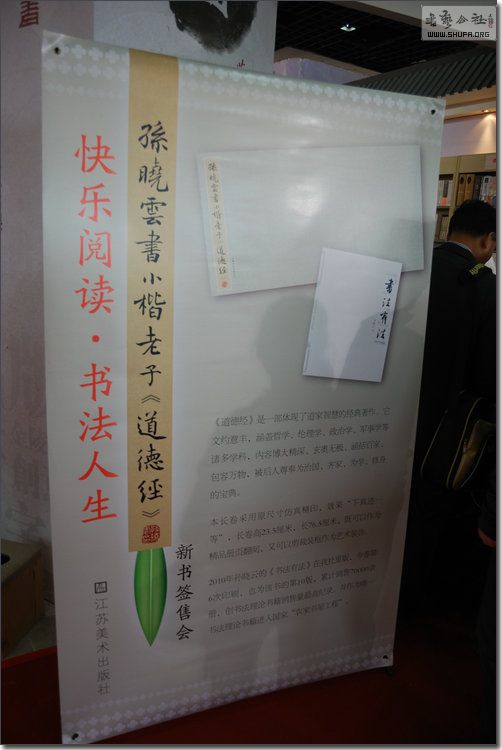 書艺公社
WWW.SHUFA.ORG
快乐阅读·书法人生
孫曉雲書小楷老子《道德經》
新书签售会
江苏美术出版社
孫曉雲書小楷老子·道德經
書法有法
《道德经》是一部体现了道家智慧的经典著作。它
文约意丰，涵盖哲学、伦理学、政治学、军事学等
诸多学科，内容博大精深、玄奥无极、涵括百家、
包容万物，被后人尊奉为治国、齐家、为学、修身
的宝典。
本长卷采用原尺寸仿真精印，效果“下真迹一
等”，长卷高23.5厘米、长76.5厘米，既可以作为
精品册页翻阅，又可以剪裁装框作为艺术装饰。
2010年孙晓云的《书法有法》在我社重版，今春第
6次印刷，也为该书的第10版，累计销售70000余
册，创书法理论书籍销售量最高纪录，并作为唯一
书法理论书籍进入国家“农家书屋工程”。